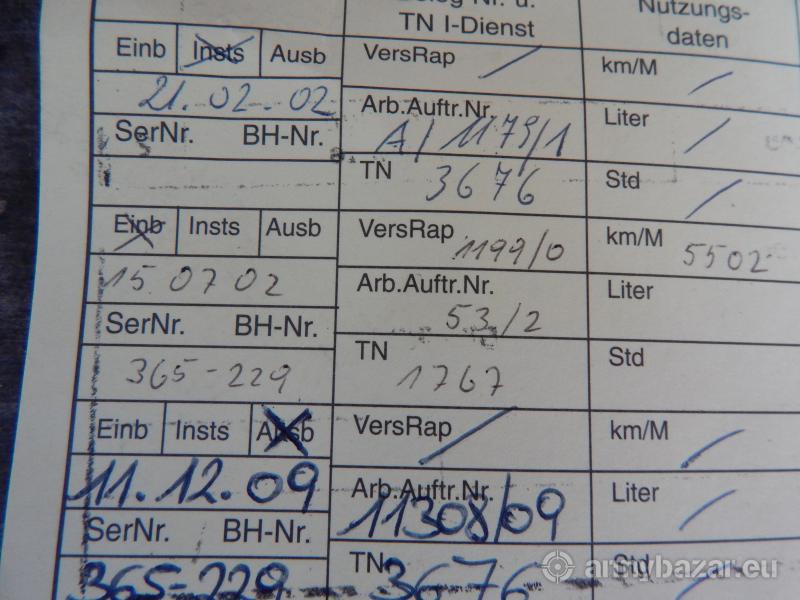 Nutzungs-
TN I-Dienst daten
Einb Insts Ausb VersRap / km/M /
21.02.02 Arb.Auftr.Nr. Liter /
SerNr. BH-Nr. A/1179/1
TN 3676 Std /
Einb Insts Ausb VersRap 1199/0 km/M 5502
15 07 02 Arb.Auftr.Nr. Liter
SerNr. BH-Nr. 53/2
365-229 TN 1767 Std
Einb Insts Ausb VersRap / km/M /
11.12.09 Arb.Auftr.Nr. Liter /
SerNr. BH-Nr. 11308/09
365-229 TN 3676 Std /
armybazar.eu